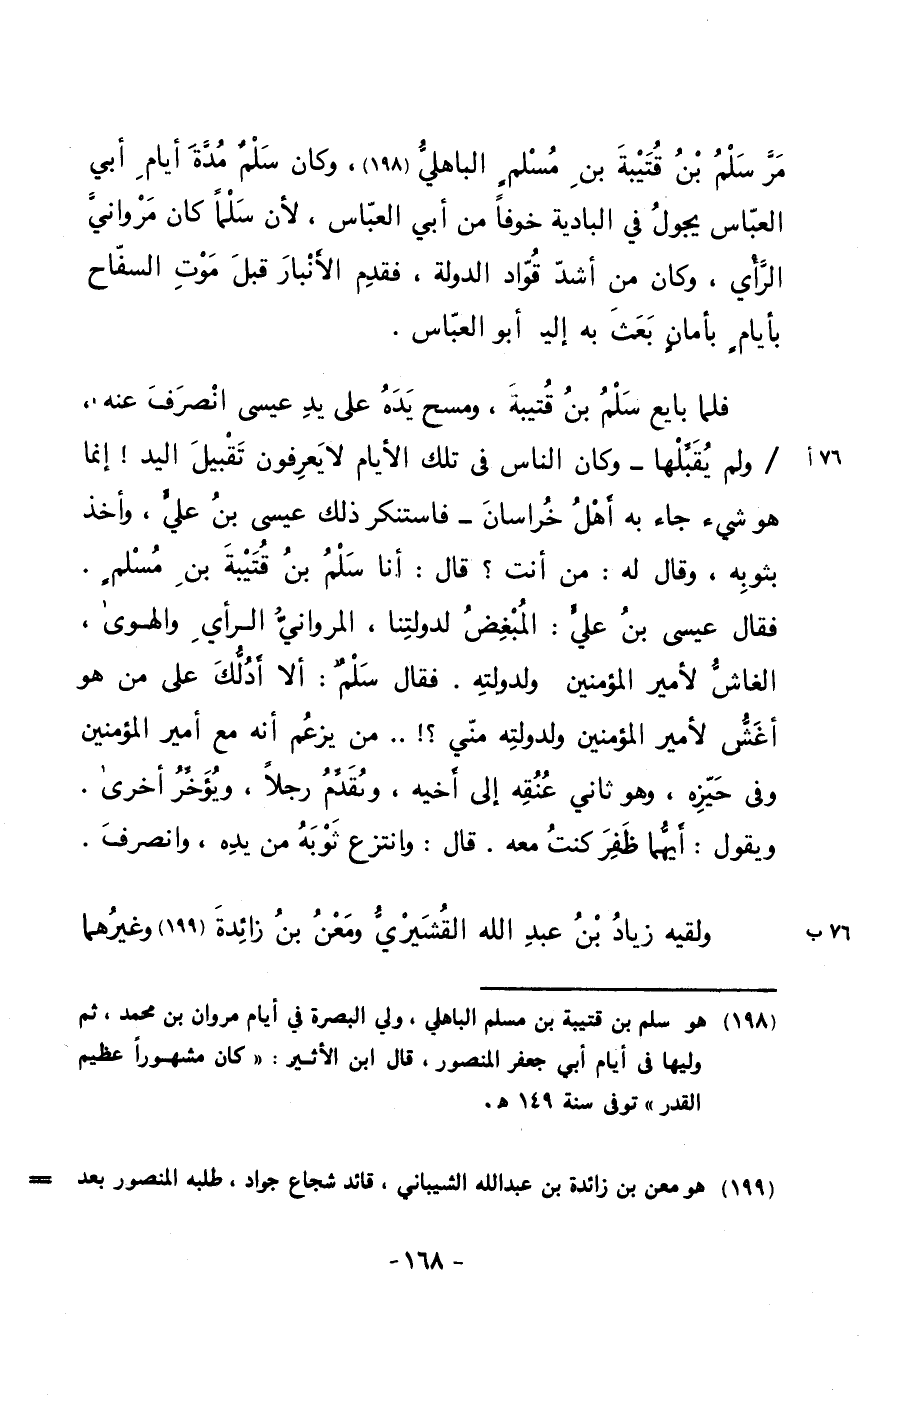 مَرَّ سَلْمُ بْنُ قُتَيْبةَ بنِ مُسْلمٍ الباهليُّ (١٩٨) ، وكان سَلْمٌ مُدَّةَ أيامِ أبي
العبّاس يجولُ في البادية خوفاً من أبي العبّاس ، لأن سَلْماً كان مَرْوانيَّ
الرَّأْي ، وكان من أشدّ قُوّاد الدولة ، فقدِم الأَنْبارَ قبلَ مَوْتِ السفّاح
بأيامٍ بأمانٍ بَعَثَ به إليه أبو العبّاس .
فلما بايع سَلْمُ بنُ قُتيبةَ ، ومسح يَدَهُ على يدِ عيسى انْصرَفَ عنه ،
٧٦ أ / ولم يُقَبِّلْها ــ وكان الناس فى تلك الأيام لايَعرِفون تَقْبيلَ اليد ! إنما
هو شيء جاء به أَهْلُ خُراسانَ ــ فاستنكر ذلك عيسى بنُ عليٍّ ، وأخذ
بثوبِه ، وقال له : من أنت ؟ قال : أنا سَلْمُ بنُ قُتَيْبةَ بنِ مُسْلمٍ .
فقال عيسى بنُ عليٍّ : المُبْغِضُ لدولتِنا ، المروانيُّ الرأيِ والهوىٰ ،
الغاشُّ لأمير المؤمنين ولدولتِه . فقال سَلْمٌ : ألا أَدُلُّكَ على من هو
أغَشُّ لأمير المؤمنين ولدولتِه منّي ؟! .. من يزعُم أنه مع أمير المؤمنين
وفى حَيّزِه ، وهو ثاني عُنُقِه إلى أخيه ، ويُقَدِّمُ رجلاً ، ويُؤَخِّرُ أخرىٰ .
ويقول : أَيُّهما ظَفِرَ كنتُ معه . قال : وانتزع ثَوْبَهُ من يدِه ، وانصرفَ .
٧٦ ب ولقيه زيادُ بْنُ عبدِ الله القُشَيْريُّ ومَعْنُ بنُ زائِدةَ (١٩٩) وغيرُهما
(١٩٨) هو سلم بن قتيبة بن مسلم الباهلي ، ولي البصرة في أيام مروان بن محمد ، ثم
وليها فى أيام أبي جعفر المنصور ، قال ابن الأثير : « كان مشهوراً عظيم
القدر » توفى سنة ١٤٩ هـ .
(١٩٩) هو معن بن زائدة بن عبدالله الشيباني ، قائد شجاع جواد ، طلبه المنصور بعد =
- ١٦٨ -